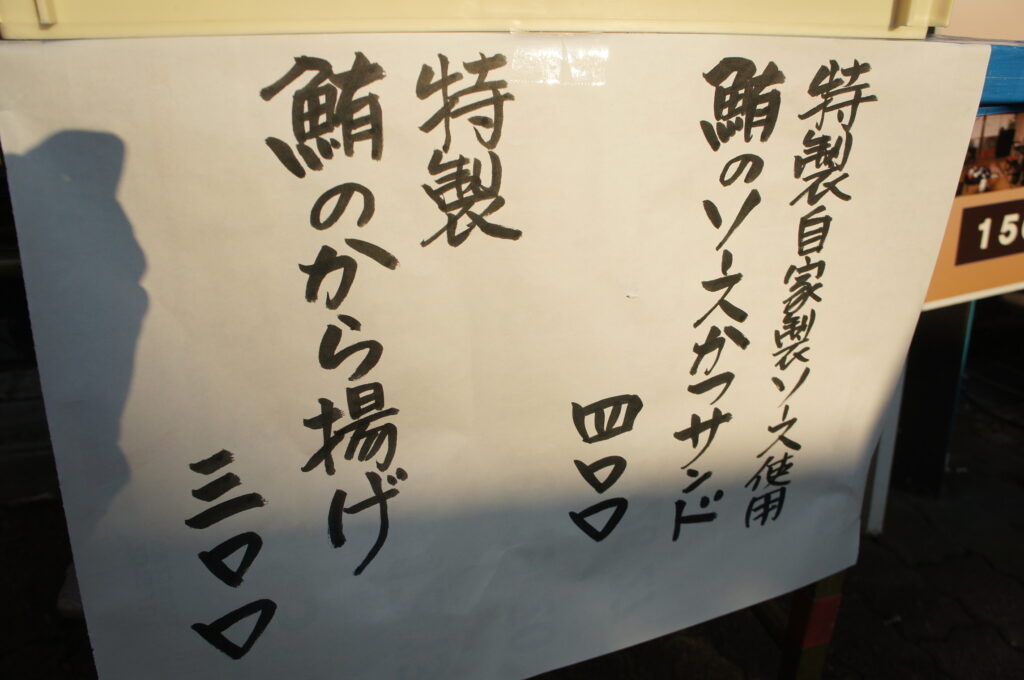 特製自家製ソース使用
鮪のソースかつサンド
四〇〇
特製
鮪のから揚げ
三〇〇